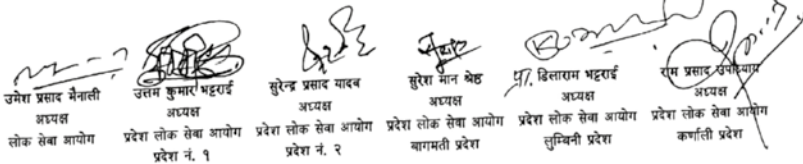 उमेश प्रसाद मैनाली
अध्यक्ष
लोक सेवा आयोग
उत्तम कुमार भट्टराई
अध्यक्ष
प्रदेश लोक सेवा आयोग
प्रदेश नं. १
सुरेन्द्र प्रसाद यादव
अध्यक्ष
प्रदेश लोक सेवा आयोग
प्रदेश नं. २
सुरेश मान श्रेष्ठ
अध्यक्ष
प्रदेश लोक सेवा आयोग
बागमती प्रदेश
प्रा. डिलाराम भट्टराई
अध्यक्ष
प्रदेश लोक सेवा आयोग
लुम्बिनी प्रदेश
राम प्रसाद उपाध्याय
अध्यक्ष
प्रदेश लोक सेवा आयोग
कर्णाली प्रदेश